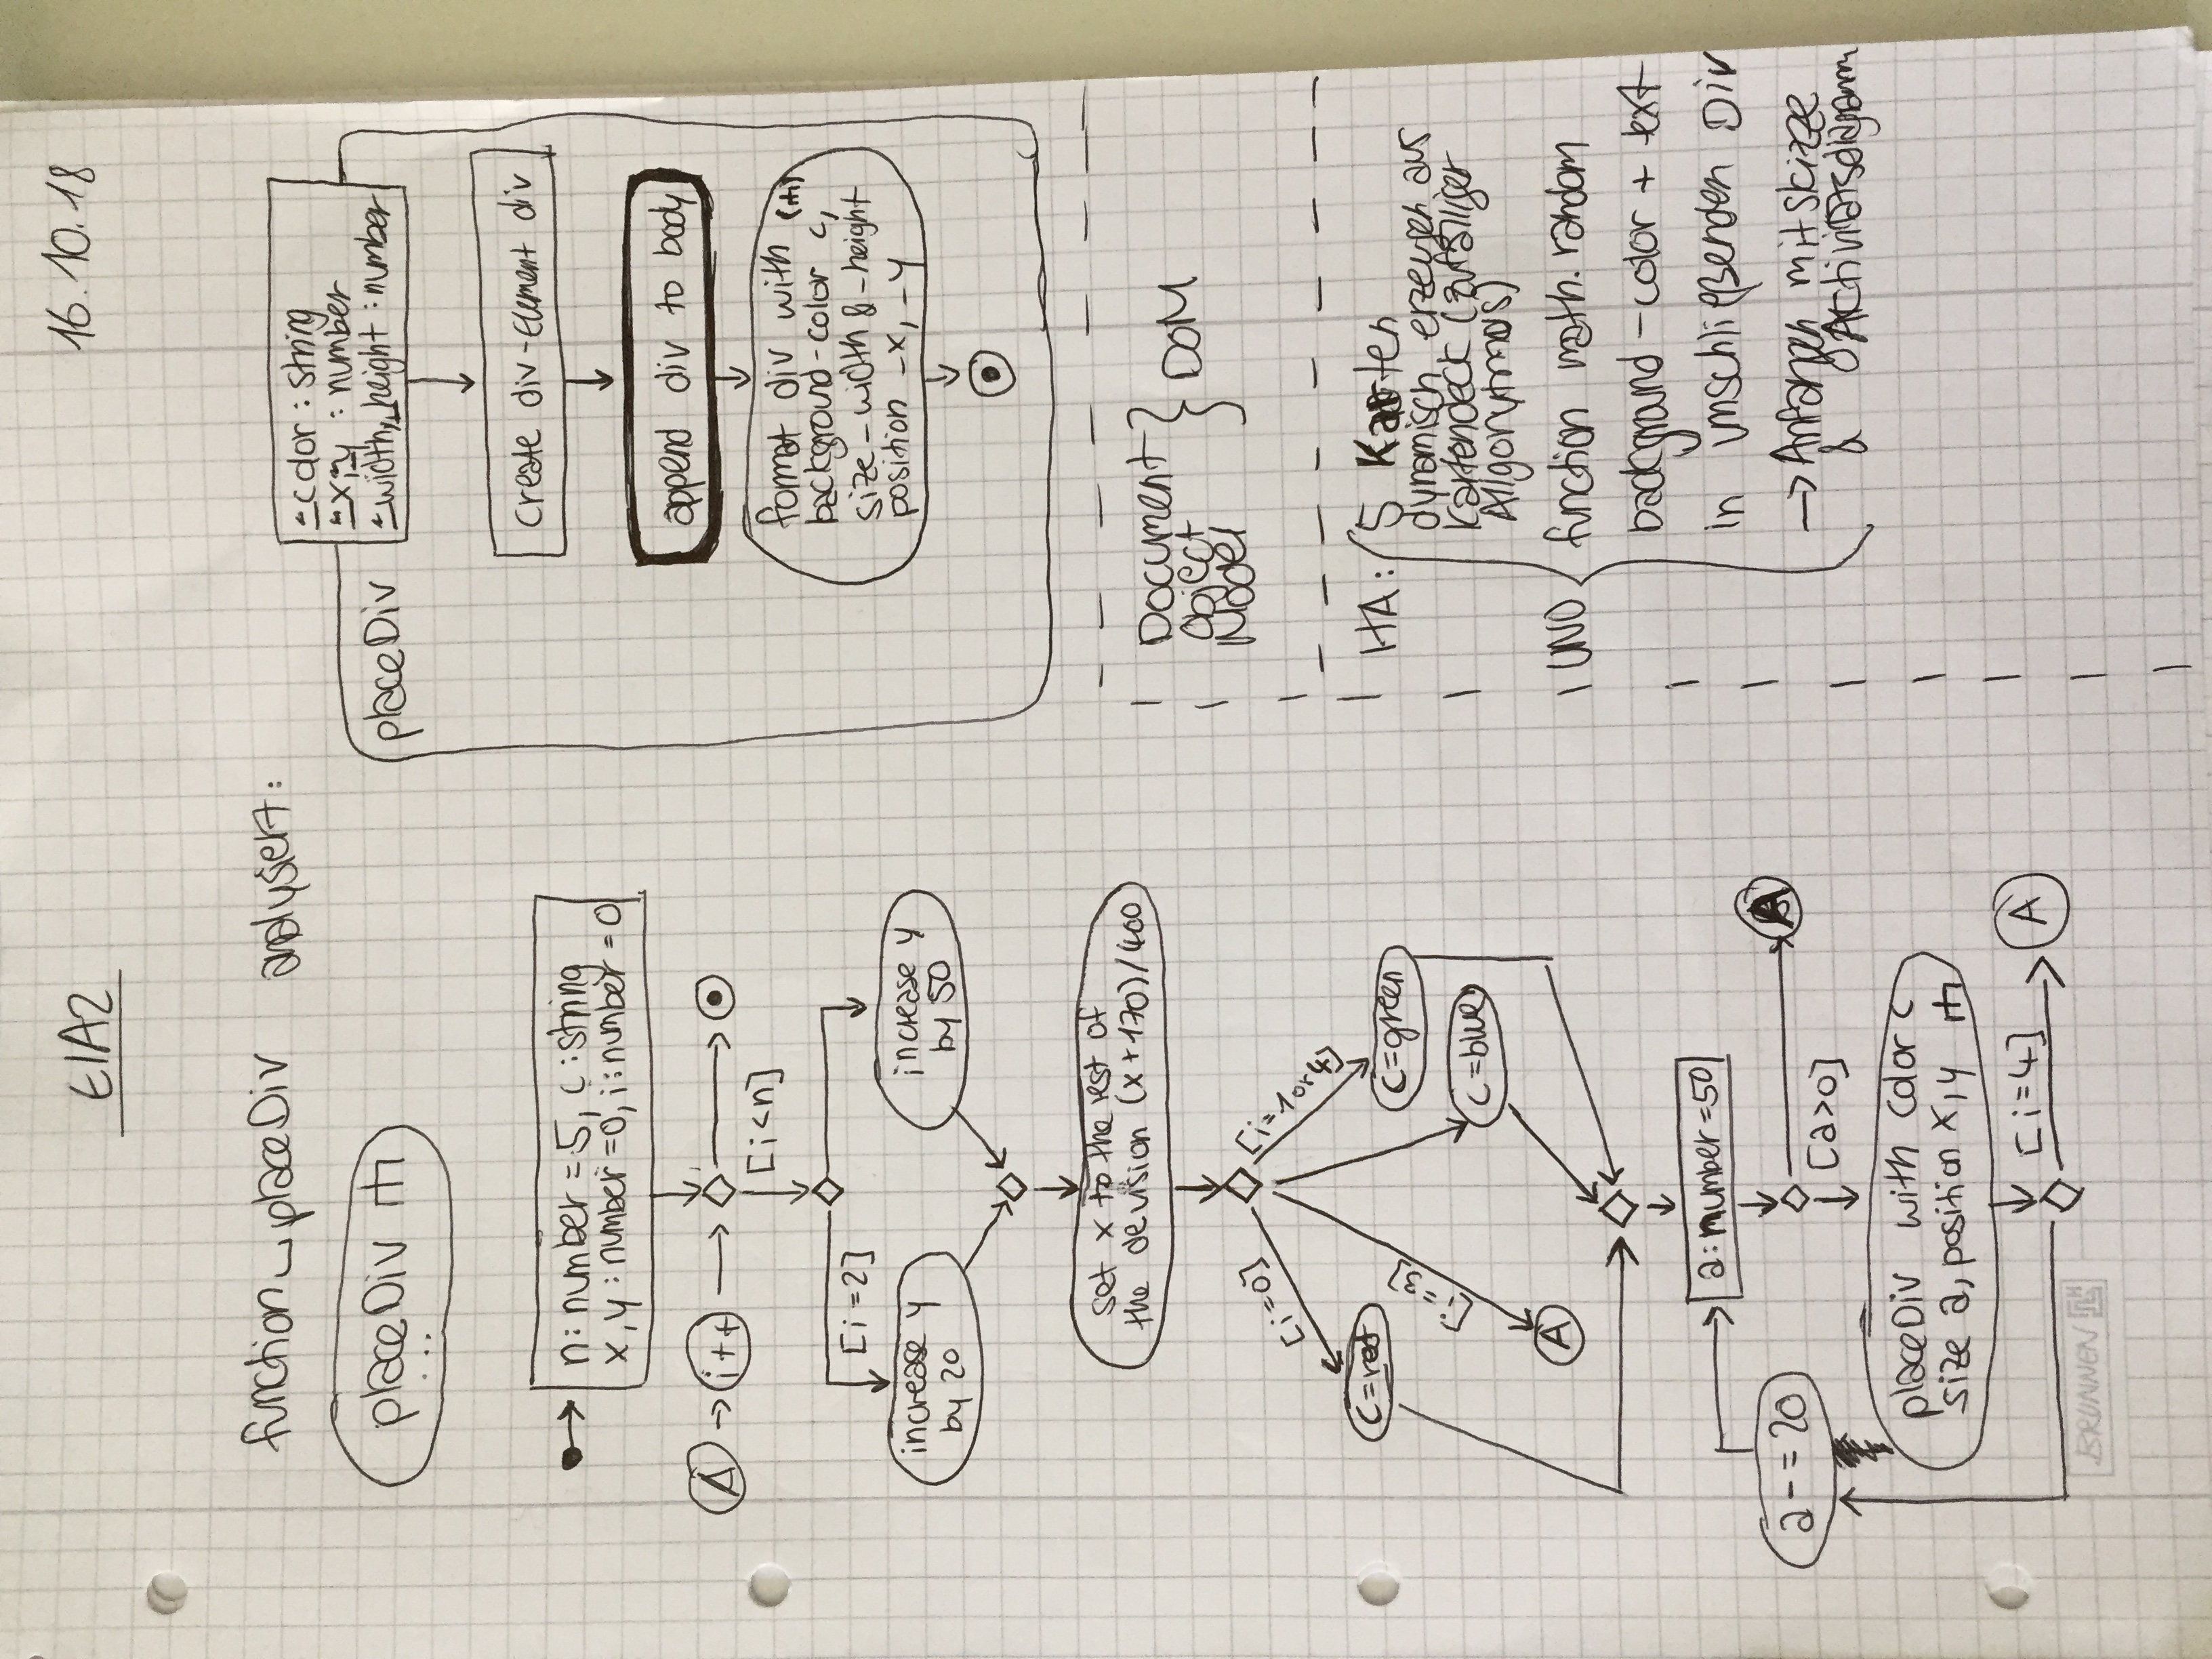 EIA2
16.10.18
function placeDiv analysiert:
placeDiv
...
n: number = 5, c: string
x, y : number = 0, i: number = 0
A
i++
[i<n]
[i=2]
increase y
by 20
increase y
by 50
set x to the rest of
the devision (x+170)/400
[i=0]
[i=1 or 4]
c=red
[i=3]
c=green
c=blue
A
a: number = 50
a -= 20
A
[a>0]
placeDiv with color c
size a, position x, y
[i=4]
A
BRUNNEN
placeDiv
_color : string
_x, _y : number
_width, _height : number
create div-Element div
append div to body
format div with
background-color c,
size _width & _height
position _x, _y
Document
Object
Model
DOM
HA: 5 Karten
dynamisch erzeugen aus
Kartendeck (zufälliger
Allgorytmus)
UNO
function math.random
background-color + text
in umschließenden Div
→ Anfangen mit Skizze
& Activitätsdiagramm